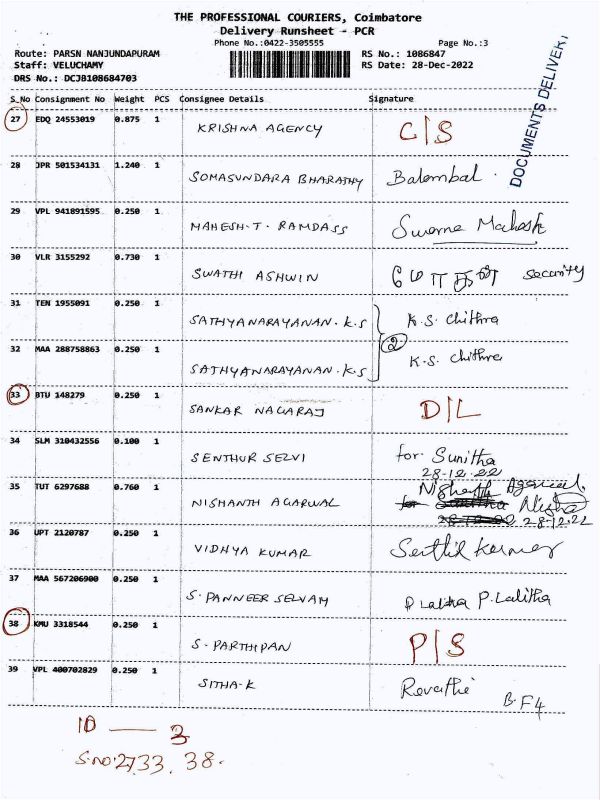 THE PROFESSIONAL COURIERS, Coimbatore
Delivery Runsheet - PCR
Phone No.:0422-3505555
Page No.:3
Route: PARSN NANJUNDAPURAM
RS No.: 1086847
Staff: VELUCHAMY
RS Date: 28-Dec-2022
DRS No.: DCJB108684703
DOCUMENTS DELIVERY
S.No Consignment No Weight PCS Consignee Details Signature
27 EDQ 24553019 0.875 1 KRISHNA AGENCY C/S
28 JPR 501534131 1.240 1 SOMASUNDARA BHARATHY Balambal.
29 VPL 941891595 0.250 1 MAHESH-T. RAMDASS Swarna Mahesh
30 VLR 3155292 0.730 1 SWATHI ASHWIN security
31 TEN 1955091 0.250 1 SATHYANARAYANAN.K.S K.S. Chithra
2
32 MAA 288758863 0.250 1 SATHYANARAYANAN.K.S K.S. Chithra
33 BTU 148279 0.250 1 SANKAR NAGARAJ D/L
34 SLM 310432556 0.100 1 SENTHUR SELVI for Sunitha
28-12-22
35 TUT 6297688 0.760 1 NISHANTH AGARWAL Nishanth Agarwal.
28-12.22
36 UPT 2120787 0.250 1 VIDHYA KUMAR Senthil Kumar
37 MAA 567206900 0.250 1 S.PANNEER SELVAM P.Lalitha
38 KMU 3318544 0.250 1 S.PARTHIPAN P/S
39 VPL 400702829 0.250 1 SITHA-K Revathi
B.F4
ID — 3
S.no:27,33,38.